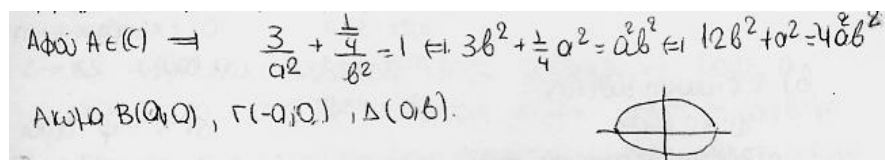 Αφού Α∈(C) ⟹ 3/a² + (1/4)/b² = 1 ⇔ 3b² + 1/4 a² = a²b² ⇔ 12b² + a² = 4a²b²
Ακόμα Β(a,0), Γ(-a,0), Δ(0,b).